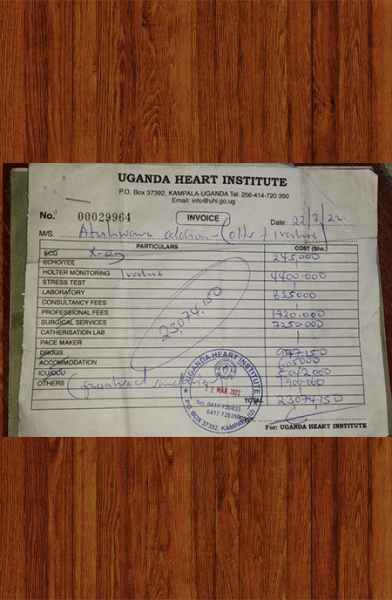 UGANDA HEART INSTITUTE
P.O. Box 37392, KAMPALA-UGANDA Tel: 256-414-720 350
Email: info@uhi.go.ug
No. 00029964 INVOICE Date: 22/3/22
M/S.
PARTICULARS COST (Shs.)
ECG X-ray 245,000
ECHO/TEE
HOLTER MONITORING 1 valve 4400.000
STRESS TEST
LABORATORY 835000
CONSULTANCY FEES
PROFESSIONAL FEES 1820.000
SURGICAL SERVICES 7250000
CATHERISATION LAB
PACE MAKER
DRUGS
ACCOMMODATION
ICU/CCU
OTHERS
23,074,150
TOTAL 23074150
UGANDA HEART INSTITUTE
2 MAR 2022
Tel: 0417 720433
0417 720356
P.O. BOX 37392, KAMPALA
For: UGANDA HEART INSTITUTE